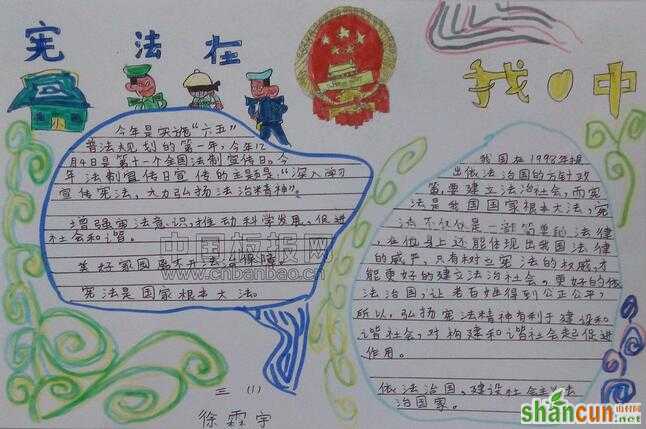 宪法在
我心中
今年是实施“六五”
普法规划的第一年，今年12
月4日是第十一个全国法制宣传日。今
年法制宣传日宣传的主题是：“深入学习
宣传宪法，大力弘扬法治精神”。
增强宪法意识，推动科学发展，促进
社会和谐。
美好家园离不开法治保障。
宪法是国家根本大法。
三（1）
徐霖宇
我国在1998年提
出依法治国的方针政
策，要建立法治社会，而宪
法是我国国家根本大法，宪
法不仅仅是一部简单的法律
在他身上还能体现出我国法律
的威严，只有树也宪法的权威，才
能更好的建立法治社会。更好的依
法治国，让老百姓得到公正公平，
所以，弘扬宪法精神有利于建设和
谐社会，对构建和谐社会起促进
作用。
依法治国，建设社会主义法
治国家。
中国板报网
www.cnbanbao.cn
shancun
山村网
.net